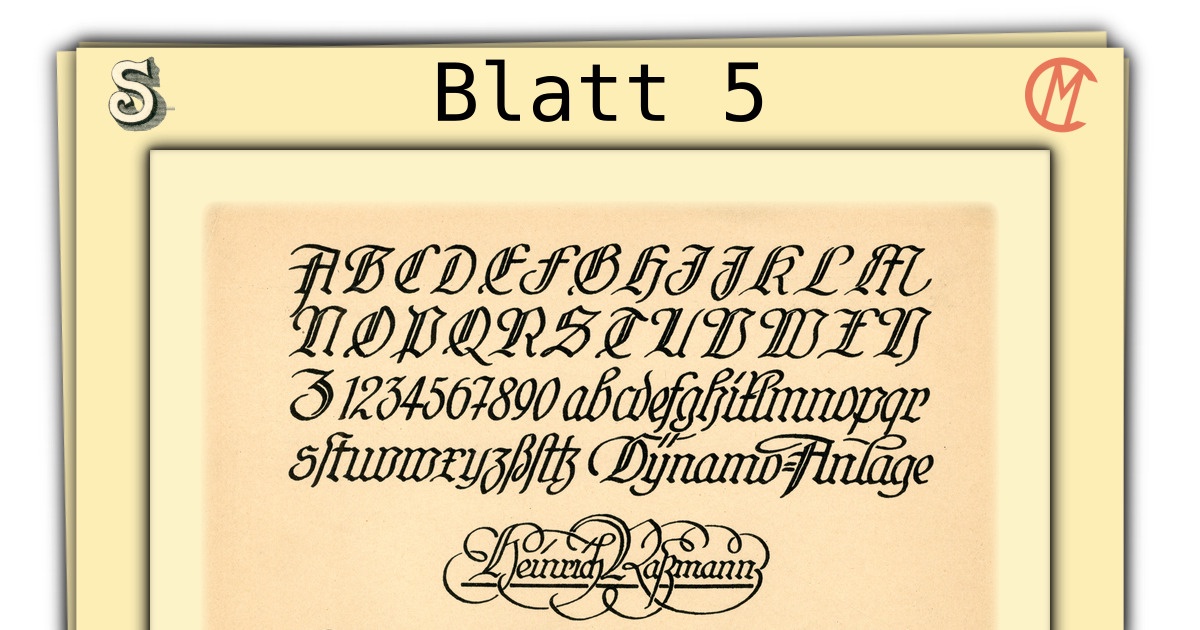 Blatt 5
ABCDEFGHIJKLM
NOPQRSTUVWXY
Z 1234567890 abcdefghijklmnopqr
sſtuvwxyzßſttz Dynamo=Anlage
Heinrich Raßmann